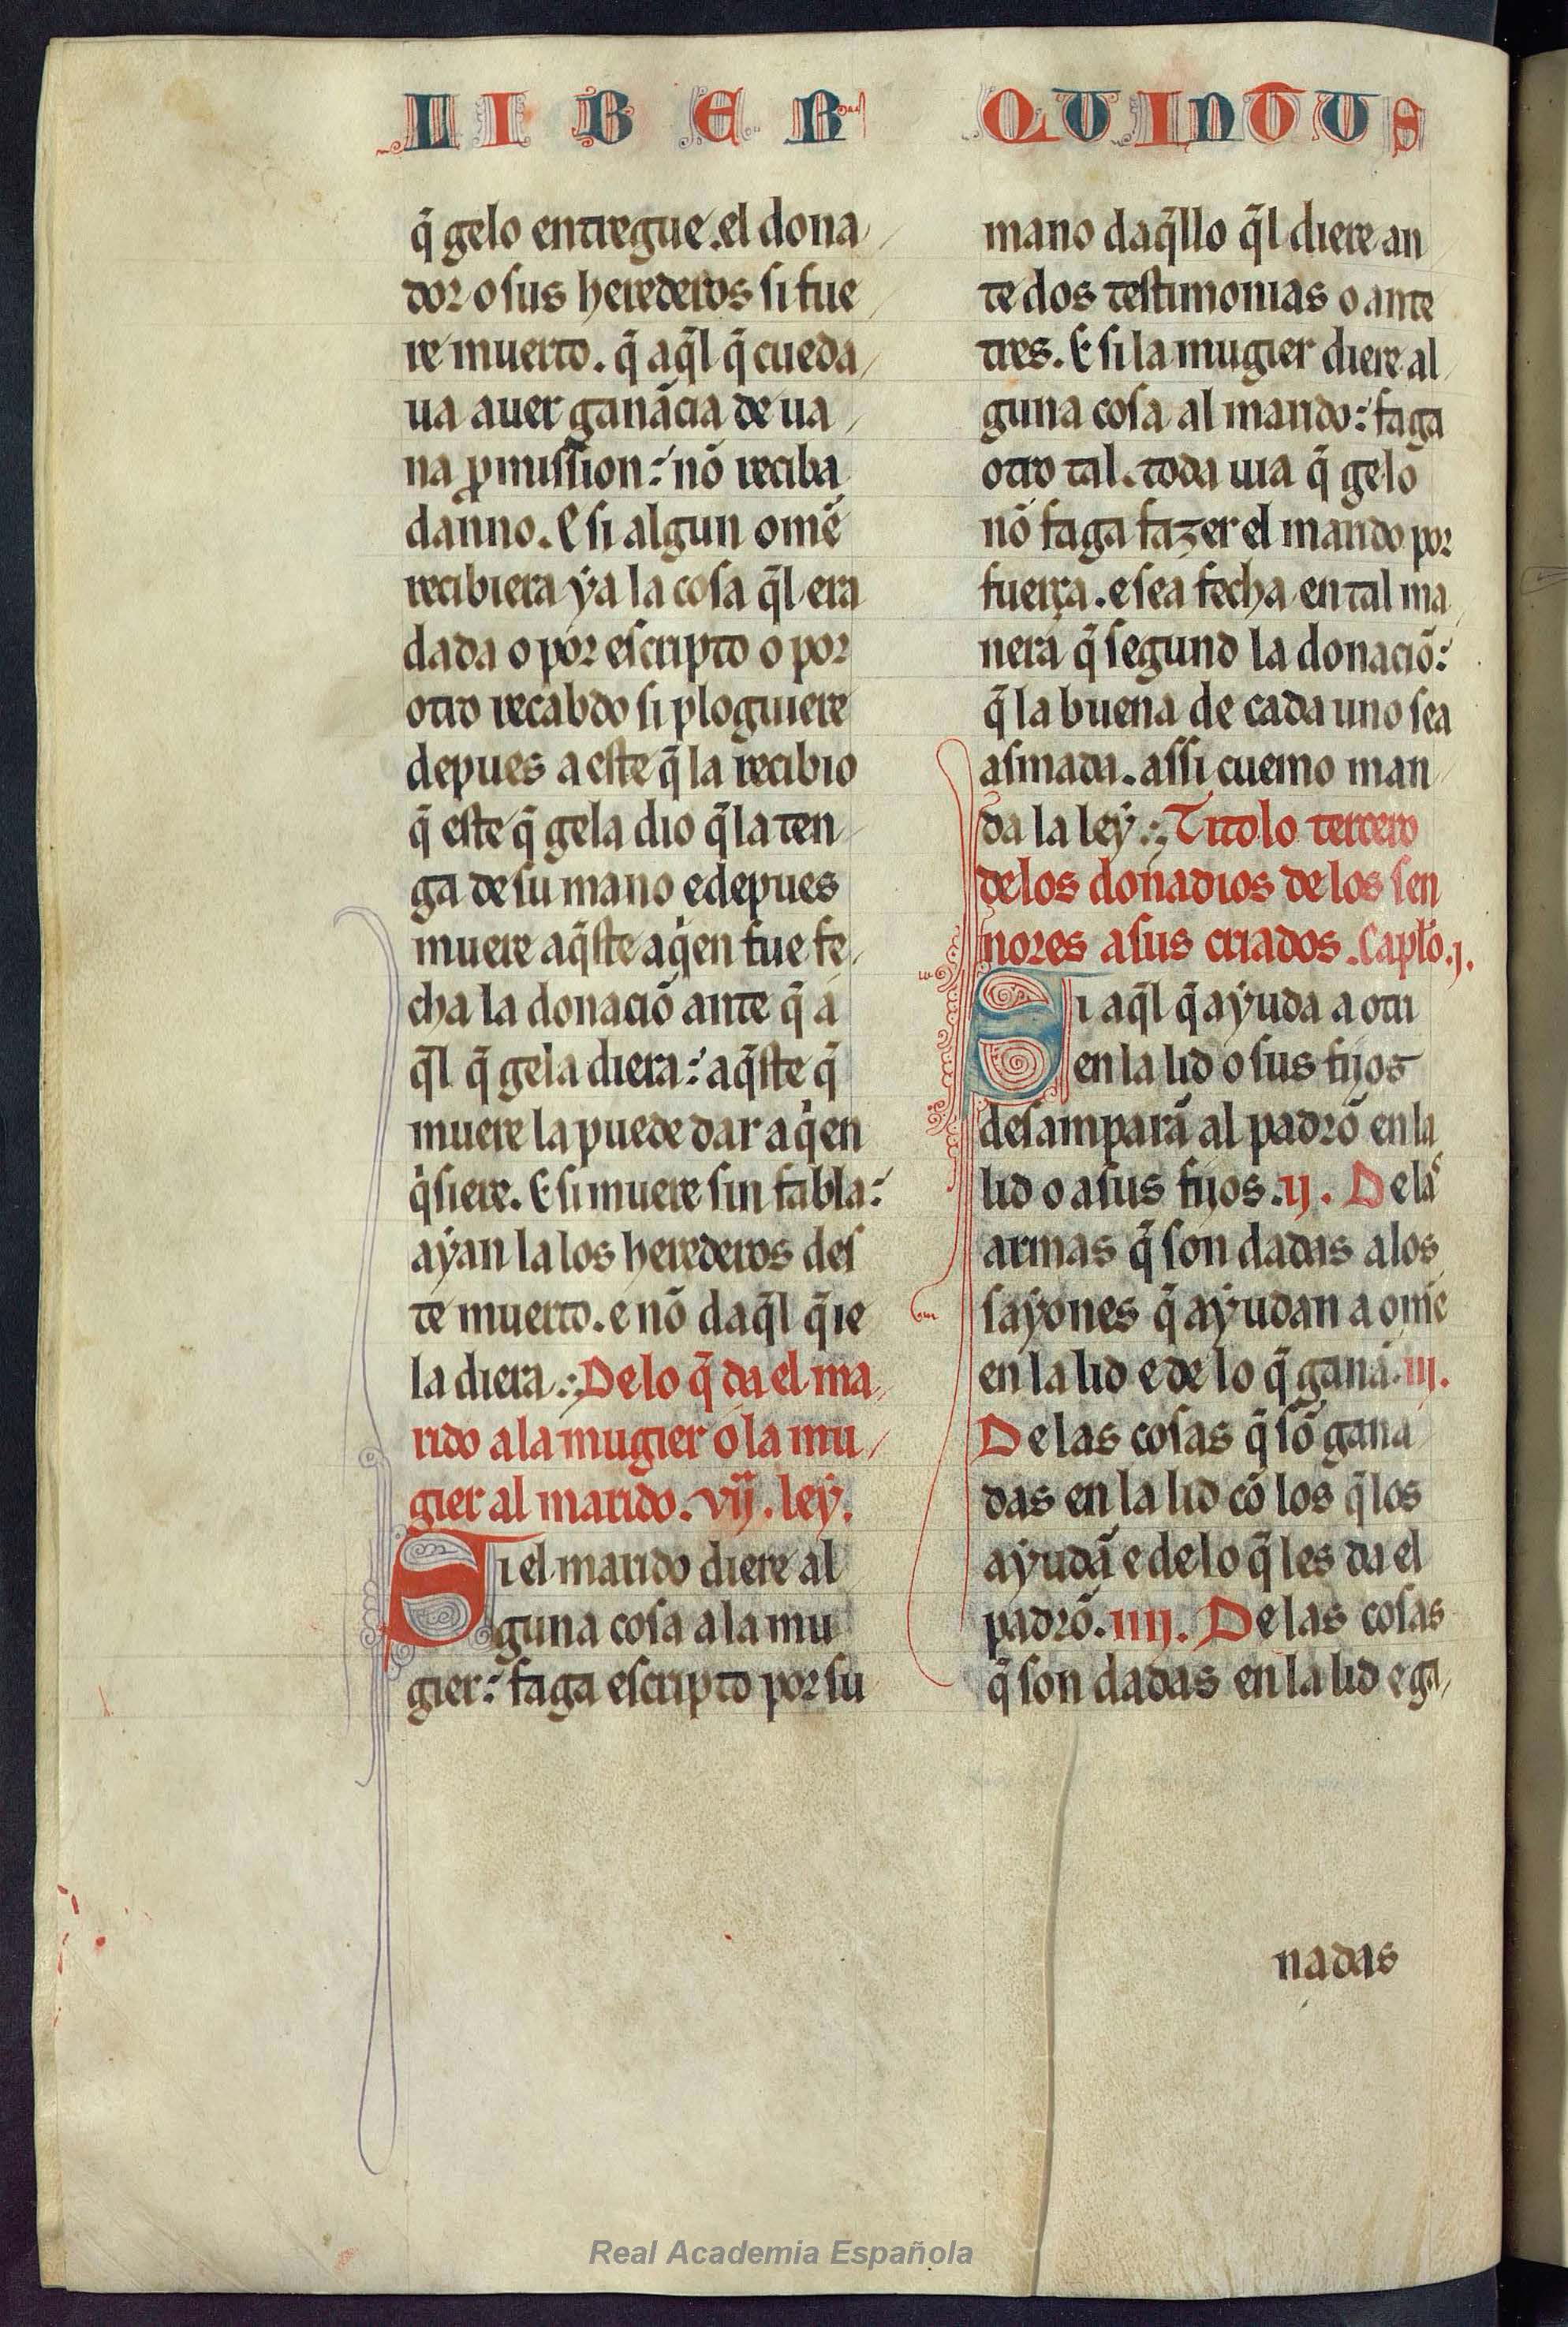 LIBER QUINTUS
q̃ gelo entregue.el dona
dor o sus herederos si fue
re muerto. q̃ aq̃l q̃ cueda
ua auer ganãcia de ua
na ꝓmission: nõ reciba
danno. E si algun omẽ
recibiera ẏa la cosa q̃l era
dada o por escripto o por
otro recabdo si ploguiere
depues a este q̃ la recibio
q̃ este q̃ gela dio q̃ la ten
ga de su mano e depues
muere aq̃ste a qͥen fue fe
cha la donaciõ ante q̃ a
q̃l q̃ gela diera: aq̃ste q̃
muere la puede dar a qͥen
qͥsiere. E si muere sin fabla:
aẏan la los herederos des
te muerto. e nõ daq̃l q̃ ie
la diera.: De lo q̃ da el ma
rido a la mugier o la mu
gier al marido. vij. leẏ.
Si el marido diere al
guna cosa a la mu
gier: faga escripto por su
mano daq̃llo q̃l diere an
te dos testimonias o ante
tres. E si la mugier diere al
guna cosa al marido: faga
otro tal. toda uia q̃ gelo
nõ faga fazer el marido por
fuerça. e sea fecha en tal ma
nera q̃ segund la donaciõ:
q̃ la buena de cada uno sea
asmada. assi cuemo man
da la leẏ.: Titolo tercero
de los donadios de los sen
nores a sus criados. Capl̃o. j.
Si aq̃l q̃ aẏuda a otri
en la lid o sus fijos
desamparã al padrõ en la
lid o a sus fijos. ij. De las
armas q̃ son dadas a los
saẏones q̃ aẏudan a omẽ
en la lid e de lo q̃ ganã. iij.
De las cosas q̃ sõ gana
das en la lid cõ los q̃ los
aẏudã e de lo q̃ les da el
padrõ. iiij. De las cosas
q̃ son dadas en la lid e ga
nadas
Real Academia Española